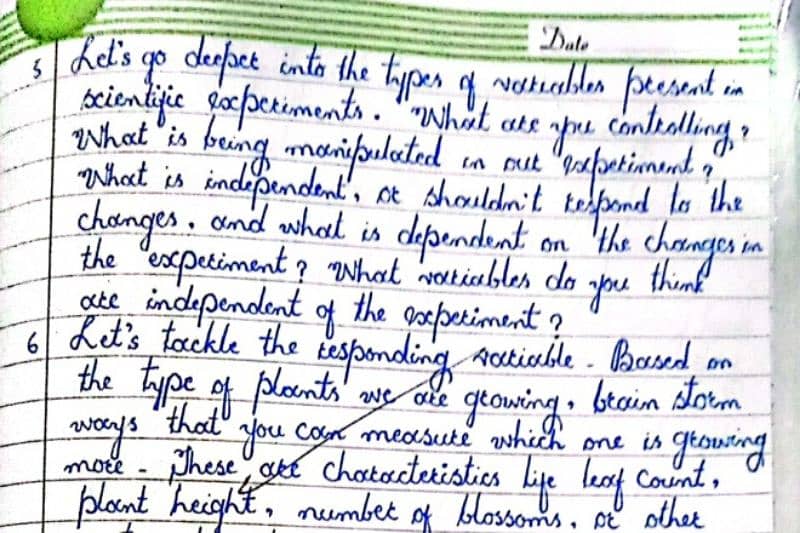 Date
5 Let's go deeper into the types of variables present in
scientific experiments. What are you controlling?
What is being manipulated in our experiment?
What is independent, or shouldn't respond to the
changes, and what is dependent on the changes in
the experiment? What variables do you think
are independent of the experiment?
6 Let's tackle the responding variable. Based on
the type of plants we are growing, brain storm
ways that you can measure which one is growing
more. These are characteristics life leaf count,
plant height, number of blossoms, or other